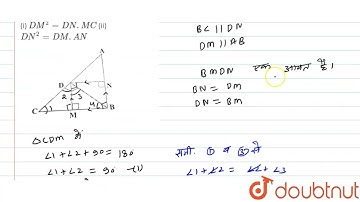 (i) DM² = DN. MC (ii)
DN² = DM. AN
A
D
N
C
M
B
1
2
3
4
△CDM में
∠1+∠2+90 = 180
∠1+∠2 = 90 -(1)
BC || DN
DM || AB
BMDN एक आयत है।
BN = DM
DN = BM
∠1+∠2 = ∠2+∠3
doubtnut